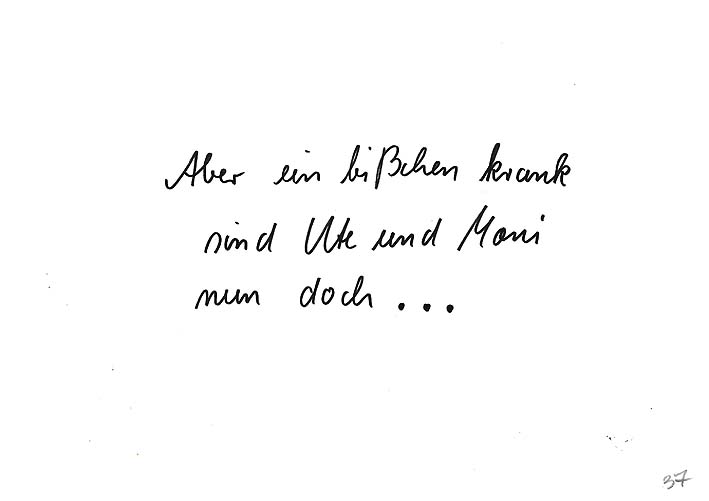 Aber ein bißchen krank
sind Ute und Moni
nun doch ...
37